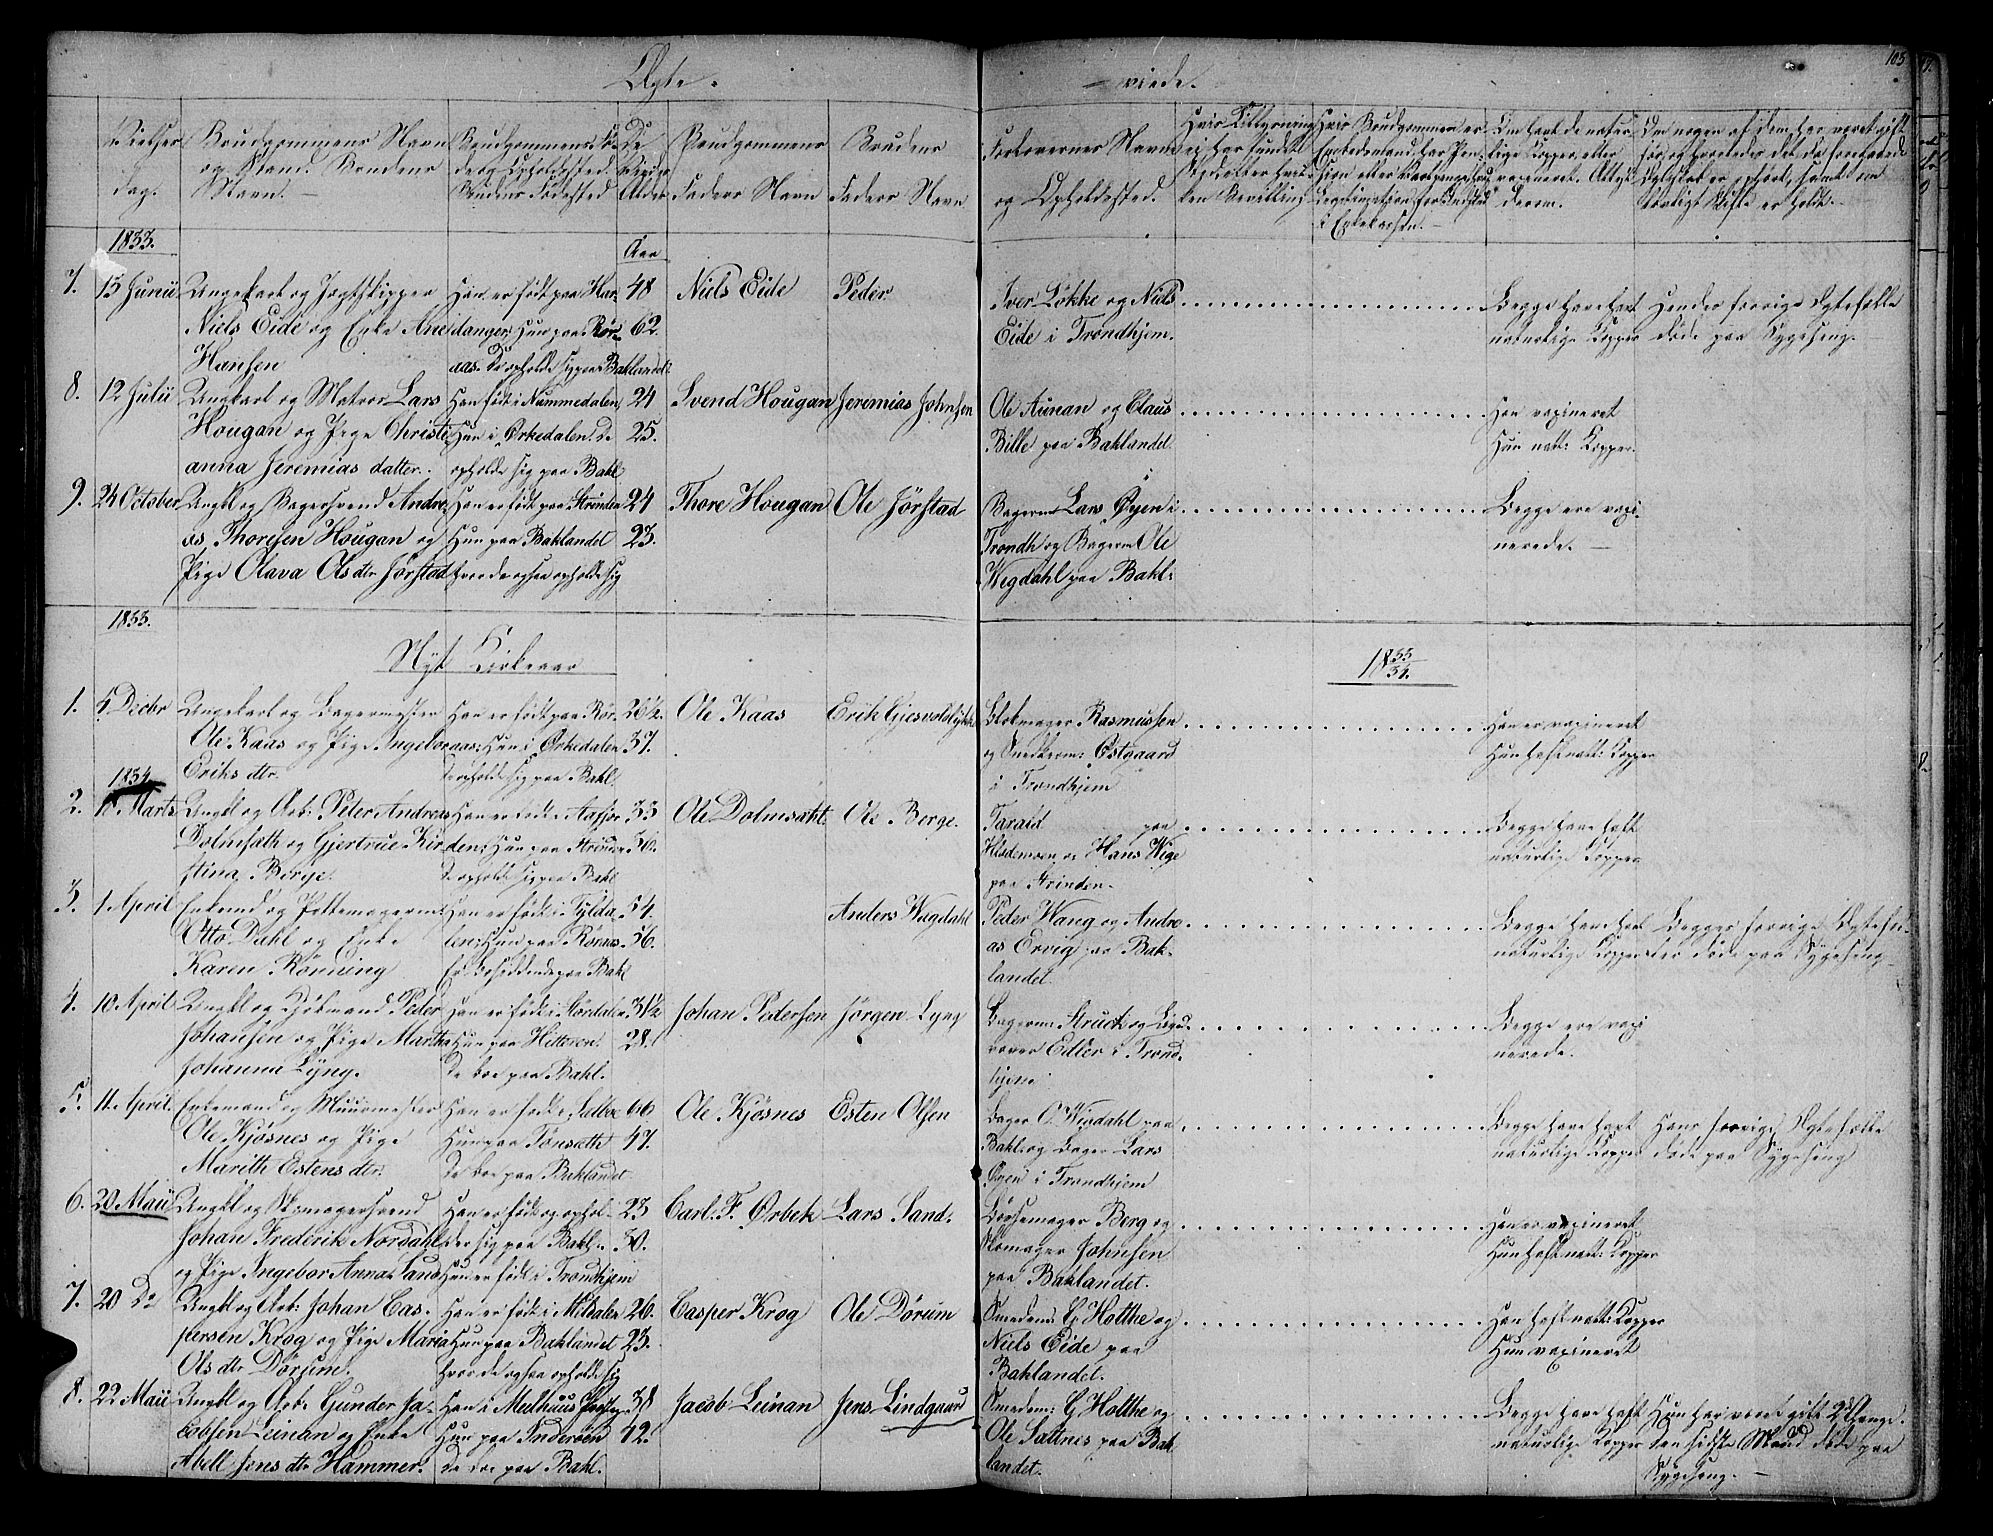 Ægte- -viede.
103
Vielses
dag.
Brudgommens Navn
og Stand. Brudens
Navn.
Brudgommens Fø-
de og Opholdssted.
Brudens Fødested
De
Viedes
Alder
Brudgommens
Faders Navn
Brudens
Faders Navn
Forlovernes Navn
og Opholdssted.
Hvis Tillysning
ei har fundet
Sted efter hvil-
ken Bevilling
Hvis Brudgommen er
1833.
Aar
7. 15 Junii
Ungekarl og Jægtskipper
Niels Eide og Enke Ane
Hansen
Han er født paa Har
danger, Hun paa Rør
aas. De opholde sig paa Baklandet
48
62.
Niels Eide
Peder
Iver Løkke og Niels
Eide i Trondhjem.
Begge have havt
naturlige Kopper
Hendes forrige Ægtefælle
døde paa Sygeseng.
8. 12 Julii
Ungkarl og Matros Lars
Hougan og Pige Christi
anna Jeremias datter.
Han født i Nummedalen,
Hun i Ørkedalen. De
opholde sig paa Bakl
24
25.
Svend Hougan
Jeremias Johnsen
Ole Aunan og Claus
Bille paa Baklandet
Han vaxineret
Hun natt: Kopper.
9. 24 October
Ungkl og Bagersvend Andre
as Thoresen Hougan og
Pige Olava Ols dtr Jørstad
Han er født paa Strinden
Hun paa Baklandet
hvor de ogsaa opholde sig
24
23.
Thore Hougan
Ole Jørstad
Bagerm Lars Øyen i
Trondh og Bagerm Ole
Wigdahl paa Bakl:
Begge ere vaxi
nerede.
1833.
Nyt Kirkeaar
1833/34.
1. 5 Decbr
Ungekarl og Bagermester
Ole Kaas og Pige Ingebor
Eriks dtr.
Han er født paa Rør
aas: Hun i Ørkedalen
De opholde sig paa Bakl.
26½
37.
Ole Kaas
Blokmager Rasmussen
og Snedkerm: Østgaard
i Trondhjem
Han er vaxineret
Hun haft natt: Kopper
1834
2. Marts
Ungkl og Arb: Peter Andreas
Dolmsæth og Gjertrue Kir
stina Berge.
Han er født i Aafjor
den: Hun paa Strinden
De opholde sig paa Bakl
33
36.
Ole Dolmsæht.
Ole Berge.
Tarald paa
Hans Wige
paa Strinden.
Begge have haft
naturlige Kopper
3. 1 April
Enkemd og Pottemagerm
Otto Dahl og Enke
Karen Rönning
Han er født i Tylda
len: Hun paa Röraas
Er boesiddende paa Bakl
54.
56.
Anders Wagdahl
Peder Wang og Andre
as Ervig paa Bak-
landet.
Begge have havt
naturlige Kopper
Begges forrige Ægtefæl-
ler døde paa Sygeseng
4. 10 April
Ungkl og Kjøbmand Peder
Johansen og Pige Martha
Johanna Lyng.
Han er født i Størdalen
Hun paa Hitteren.
De boe paa Bakl.
31½
28.
Johan Pedersen
Jörgen Lyng
Bagerm Struck og
Edler i Trond-
hjem
Begge ere vaxi
nerede.
5. 11 April.
Enkemand og Muurmester
Ole Kjøsnes og Pige
Marith Estens dtr.
Han er født i Selboe
Hun paa Tønsæth
De boe paa Baklandet
66
47.
Ole Kjösnes
Esten Olsen
Bager O. Wigdahl paa
Bakl. og Bager Lars
Øyen i Trondhjem
Begge have havt
naturlige Kopper
Hans forrige Ægtefælle
døde paa Sygeseng
6. 20 Maii
Ungkl og Skomagersvend
Johan Frederik Nordahl
og Pige Ingebor Anna Sand
Han er født og ophol-
der sig paa Bakl.
Hun er født i Trondhjem
23
30.
Carl: F. Ørbek
Lars Sand.
Børsemager Berg og
Skomager Johnsen
paa Baklandet.
Han er vaxineret
Hun haft natt: Kopper
7. 20 Do
Ungkl og Arb: Johan Cas-
persen Krog og Pige Maria
Ols dtr Dörum.
Han er født i Meldalen
Hun paa Baklandet
hvor de ogsaa opholde sig
26.
23.
Casper Krog
Ole Dörum
Smedem: G Holthe og
Niels Eide paa
Baklandet.
Han haft natt: Kopper
Hun vaxineret
8. 22 Maii
Ungkl og Arb: Gunder Ja-
cobsen Leinan og Enke
Abell Jens dtr Hammer.
Han i Melhuus Præstg
Hun paa Inderøen
De boe paa Bakl.
38
42.
Jacob Leinan
Jens Lindgaard
Smedem: G Holthe og
Ole Sattnes paa Bak
landet.
Begge have haft
naturlige Kopper
Hun har været gift 2de Gange.
den sidste Mand døde paa
Sygeseng.